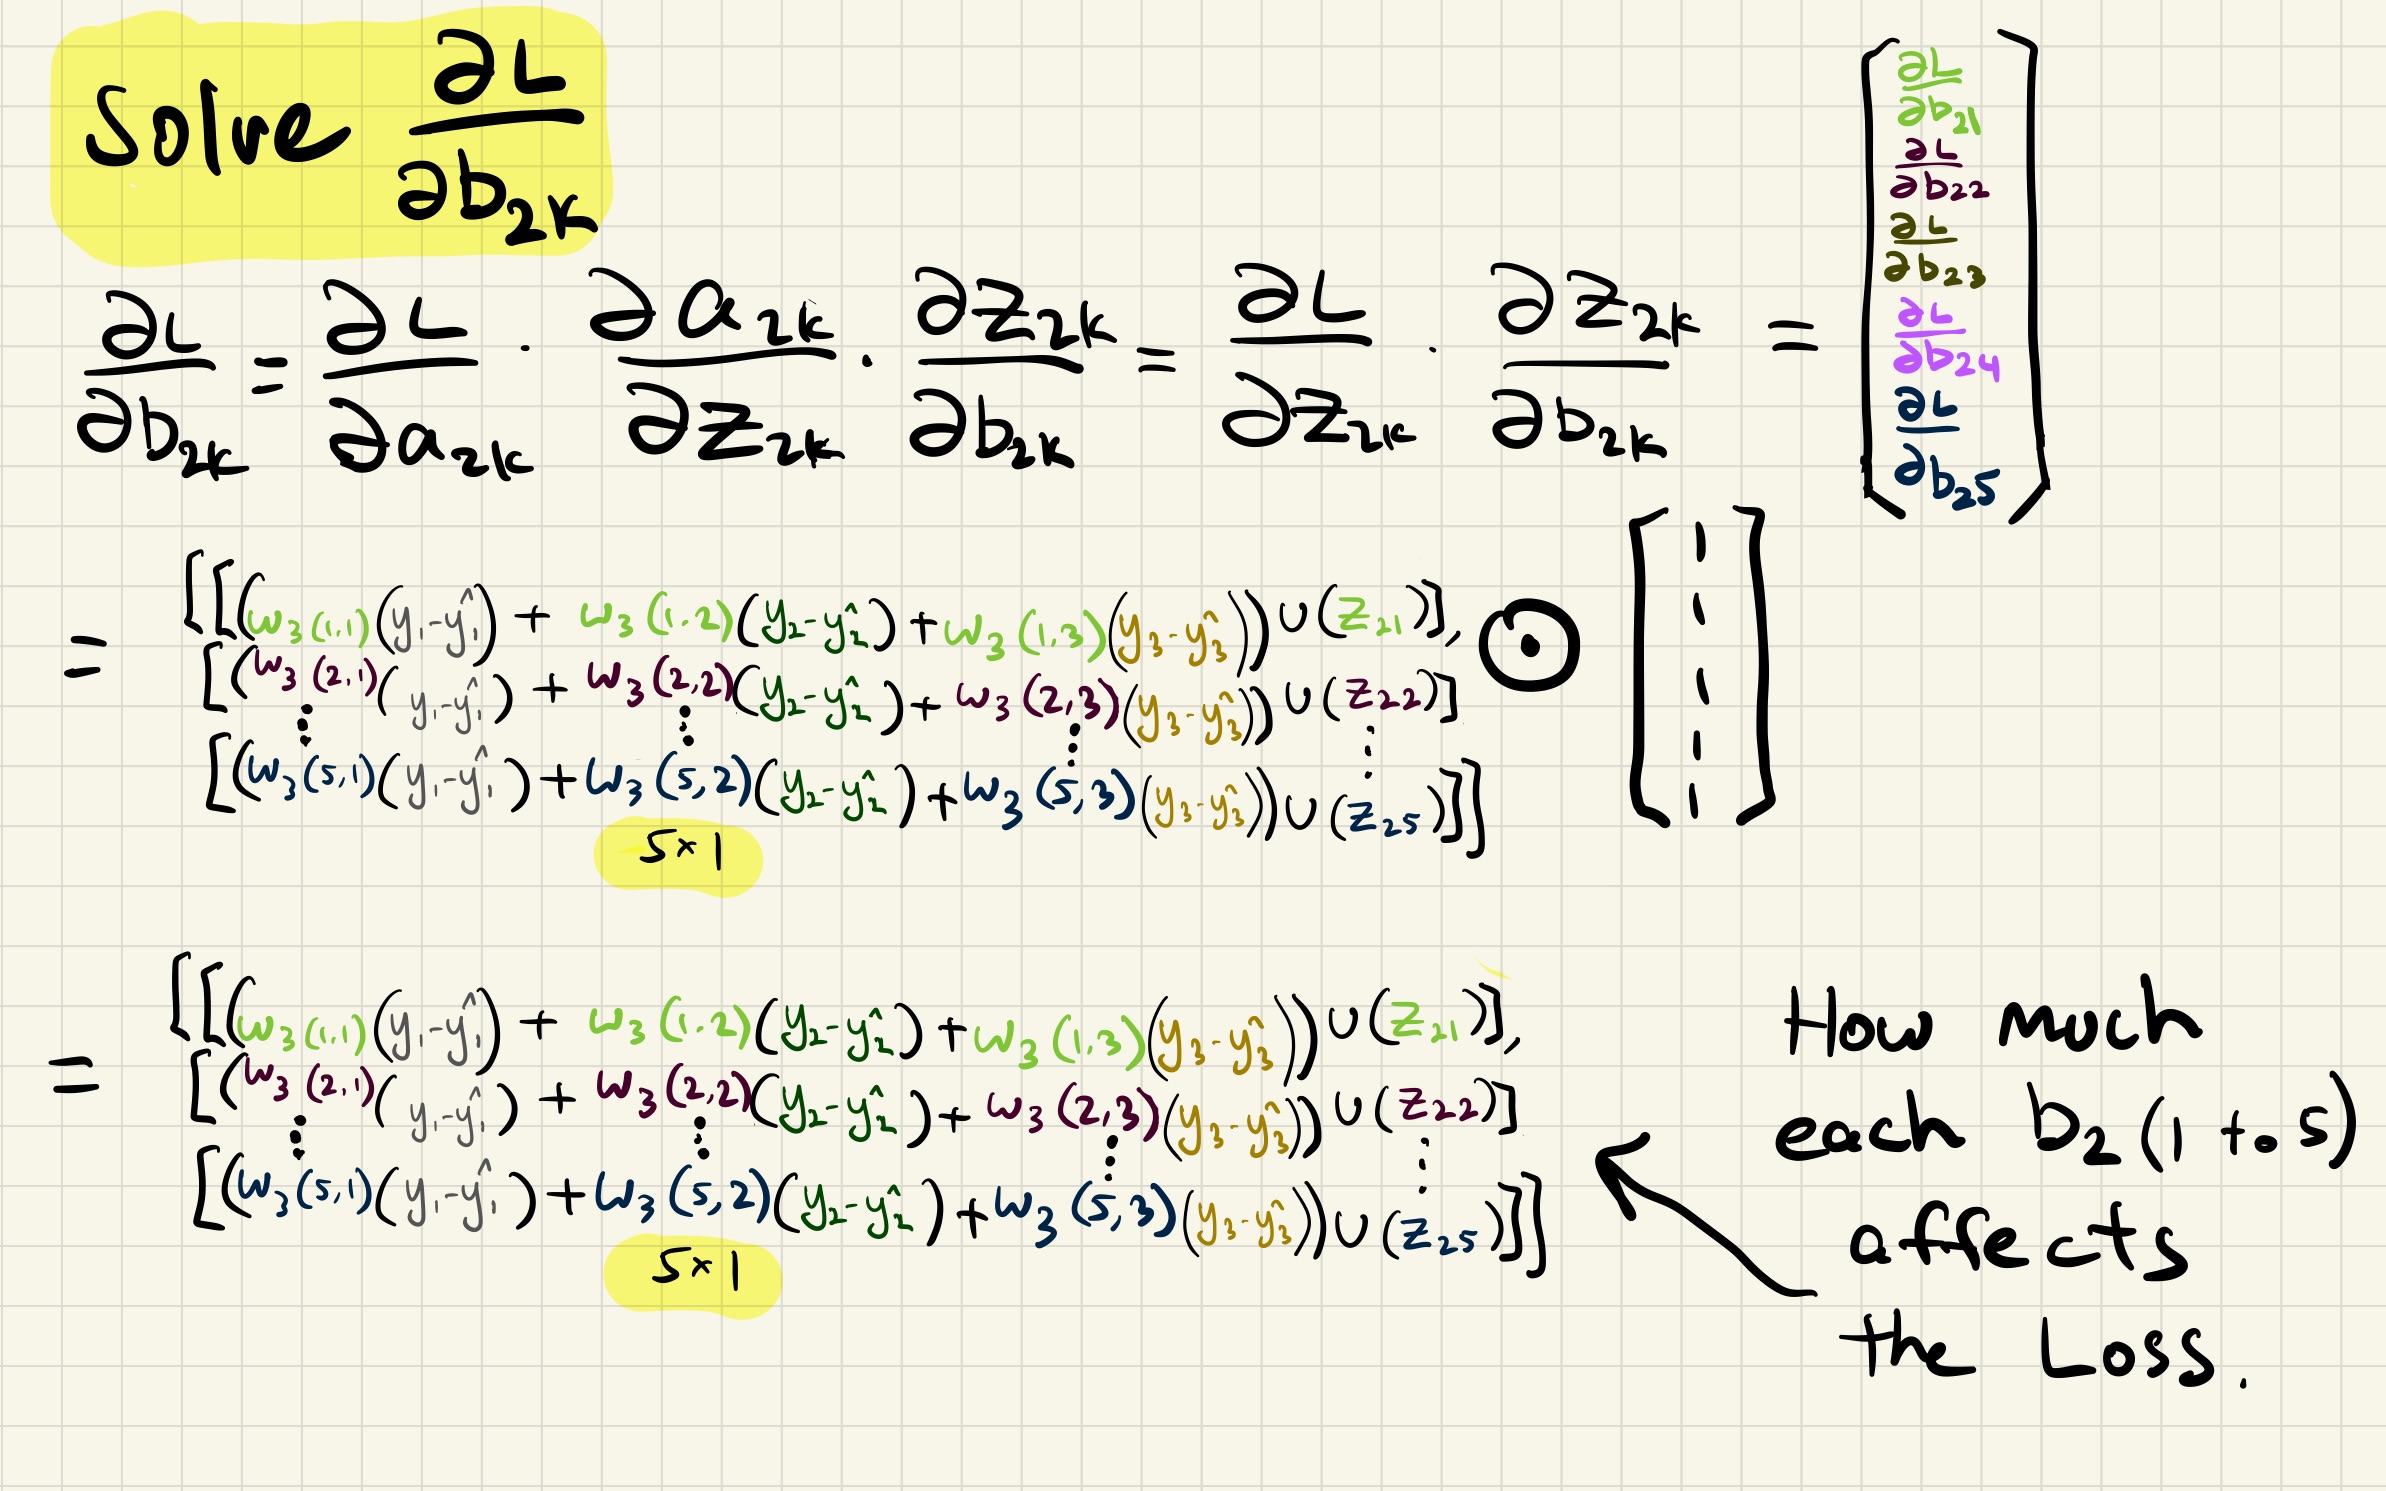 Solve ∂L/∂b₂ₖ
∂L/∂b₂ₖ = ∂L/∂a₂ₖ · ∂a₂ₖ/∂z₂ₖ · ∂z₂ₖ/∂b₂ₖ = ∂L/∂z₂ₖ · ∂z₂ₖ/∂b₂ₖ =
[∂L/∂b₂₁
∂L/∂b₂₂
∂L/∂b₂₃
∂L/∂b₂₄
∂L/∂b₂₅]
= [[(w₃(1,1)(y₁-ŷ₁) + w₃(1,2)(y₂-ŷ₂) + w₃(1,3)(y₃-ŷ₃))U(z₂₁)], ⊙ [1
[(w₃(2,1)(y₁-ŷ₁) + w₃(2,2)(y₂-ŷ₂) + w₃(2,3)(y₃-ŷ₃))U(z₂₂)] 1
⋮ ⋮ ⋮ ⋮ 1
[(w₃(5,1)(y₁-ŷ₁) + w₃(5,2)(y₂-ŷ₂) + w₃(5,3)(y₃-ŷ₃))U(z₂₅)]] 1
1]
5×1
= [[(w₃(1,1)(y₁-ŷ₁) + w₃(1,2)(y₂-ŷ₂) + w₃(1,3)(y₃-ŷ₃))U(z₂₁)],
[(w₃(2,1)(y₁-ŷ₁) + w₃(2,2)(y₂-ŷ₂) + w₃(2,3)(y₃-ŷ₃))U(z₂₂)]
⋮ ⋮ ⋮ ⋮
[(w₃(5,1)(y₁-ŷ₁) + w₃(5,2)(y₂-ŷ₂) + w₃(5,3)(y₃-ŷ₃))U(z₂₅)]]
5×1
How much
each b₂ (1 to 5)
affects
the Loss.